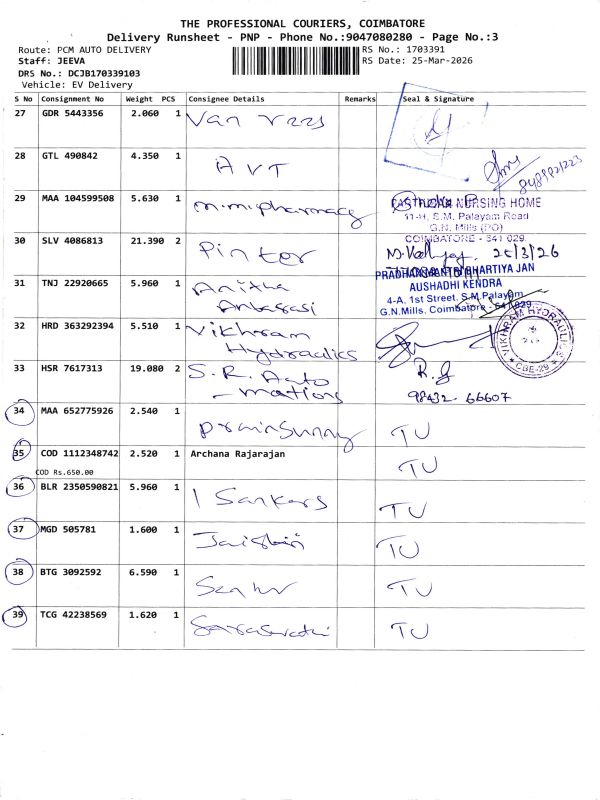 THE PROFESSIONAL COURIERS, COIMBATORE
Delivery Runsheet - PNP - Phone No.:9047080280 - Page No.:3
Route: PCM AUTO DELIVERY
RS No.: 1703391
Staff: JEEVA
RS Date: 25-Mar-2026
DRS No.: DCJB170339103
Vehicle: EV Delivery
S No Consignment No Weight PCS Consignee Details Remarks Seal & Signature
27 GDR 5443356 2.060 1 Van
28 GTL 490842 4.350 1 AVT
8489821223
29 MAA 104599508 5.630 1 m.m.pharmacy
NURSING HOME
11-H, S.M. Palayam Road
G.N. Mills (PO)
COIMBATORE - 641 029.
30 SLV 4086813 21.390 2 Pinter
25/3/26
31 TNJ 22920665 5.960 1 Anitha
PRADHAN MANTRI BHARTIYA JAN
AUSHADHI KENDRA
4-A, 1st Street, S.M.Palayam
G.N.Mills, Coimbatore - 641 029.
32 HRD 363292394 5.510 1 Vikhram
Hydraulics
VIKHRAM HYDRAULICS
CBE-29
33 HSR 7617313 19.080 2 S.R. Auto
- mations
98432-66607
34 MAA 652775926 2.540 1 TU
35 COD 1112348742 2.520 1 Archana Rajarajan TU
COD Rs.650.00
36 BLR 2350590821 5.960 1 TU
37 MGD 505781 1.600 1 TU
38 BTG 3092592 6.590 1 TU
39 TCG 42238569 1.620 1 TU